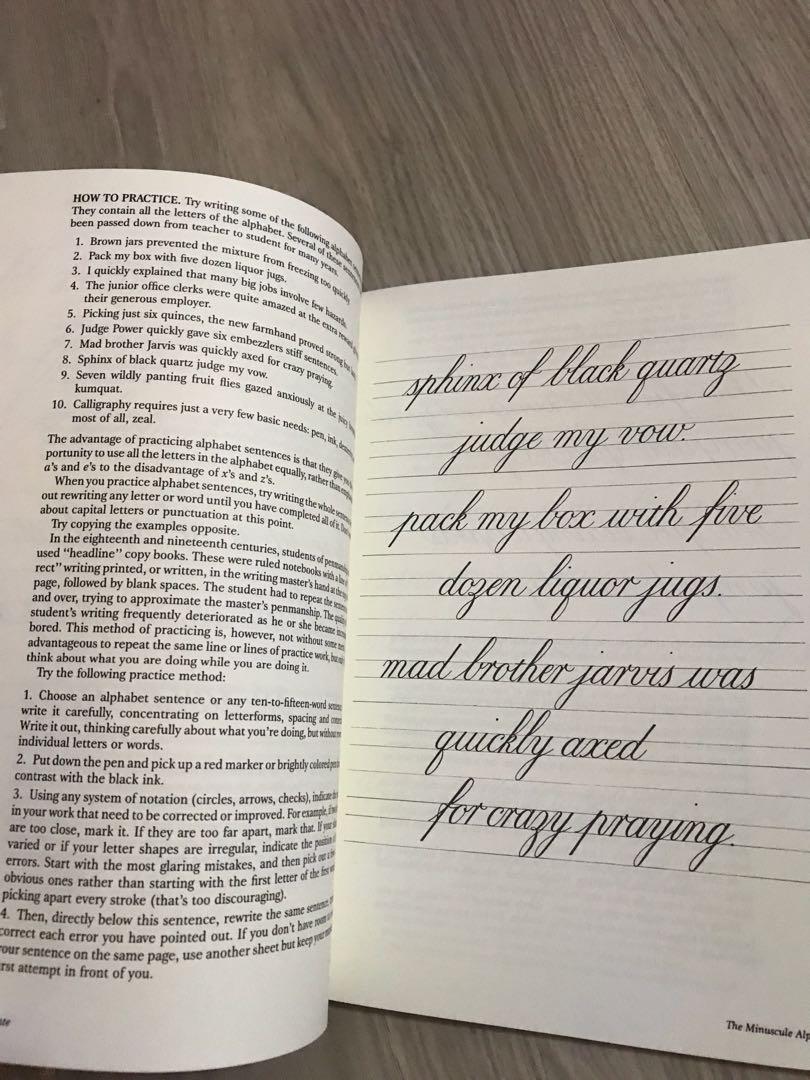 HOW TO PRACTICE. Try writing some of the following alphabet
They contain all the letters of the alphabet. Several of these
been passed down from teacher to student for many years.
1. Brown jars prevented the mixture from freezing too quickly
2. Pack my box with five dozen liquor jugs.
3. I quickly explained that many big jobs involve few hazards.
4. The junior office clerks were quite amazed at the extra
their generous employer.
5. Picking just six quinces, the new farmhand proved strong
6. Judge Power quickly gave six embezzlers stiff sentences.
7. Mad brother Jarvis was quickly axed for crazy praying.
8. Sphinx of black quartz judge my vow.
9. Seven wildly panting fruit flies gazed anxiously at the juicy
kumquat.
10. Calligraphy requires just a very few basic needs: pen, ink,
most of all, zeal.
The advantage of practicing alphabet sentences is that they give
portunity to use all the letters in the alphabet equally, rather than
a's and e's to the disadvantage of x's and z's.
When you practice alphabet sentences, try writing the whole
out rewriting any letter or word until you have completed all of it.
about capital letters or punctuation at this point.
Try copying the examples opposite.
In the eighteenth and nineteenth centuries, students of
used "headline" copy books. These were ruled notebooks with a line
rect" writing printed, or written, in the writing master's hand at the
page, followed by blank spaces. The student had to repeat the
and over, trying to approximate the master's penmanship. The
student's writing frequently deteriorated as he or she became
bored. This method of practicing is, however, not without some
advantageous to repeat the same line or lines of practice work, but
think about what you are doing while you are doing it.
Try the following practice method:
1. Choose an alphabet sentence or any ten-to-fifteen-word
write it carefully, concentrating on letterforms, spacing and
Write it out, thinking carefully about what you're doing, but without
individual letters or words.
2. Put down the pen and pick up a red marker or brightly colored
contrast with the black ink.
3. Using any system of notation (circles, arrows, checks), indicate
in your work that need to be corrected or improved. For example,
are too close, mark it. If they are too far apart, mark that. If your
varied or if your letter shapes are irregular, indicate the
errors. Start with the most glaring mistakes, and then pick out
obvious ones rather than starting with the first letter of the first
picking apart every stroke (that's too discouraging).
4. Then, directly below this sentence, rewrite the same sentence,
correct each error you have pointed out. If you don't have room
your sentence on the same page, use another sheet but keep your
rst attempt in front of you.
sphinx of black quartz
judge my vow.
pack my box with five
dozen liquor jugs.
mad brother jarvis was
quickly axed
for crazy praying.
The Minuscule Alp